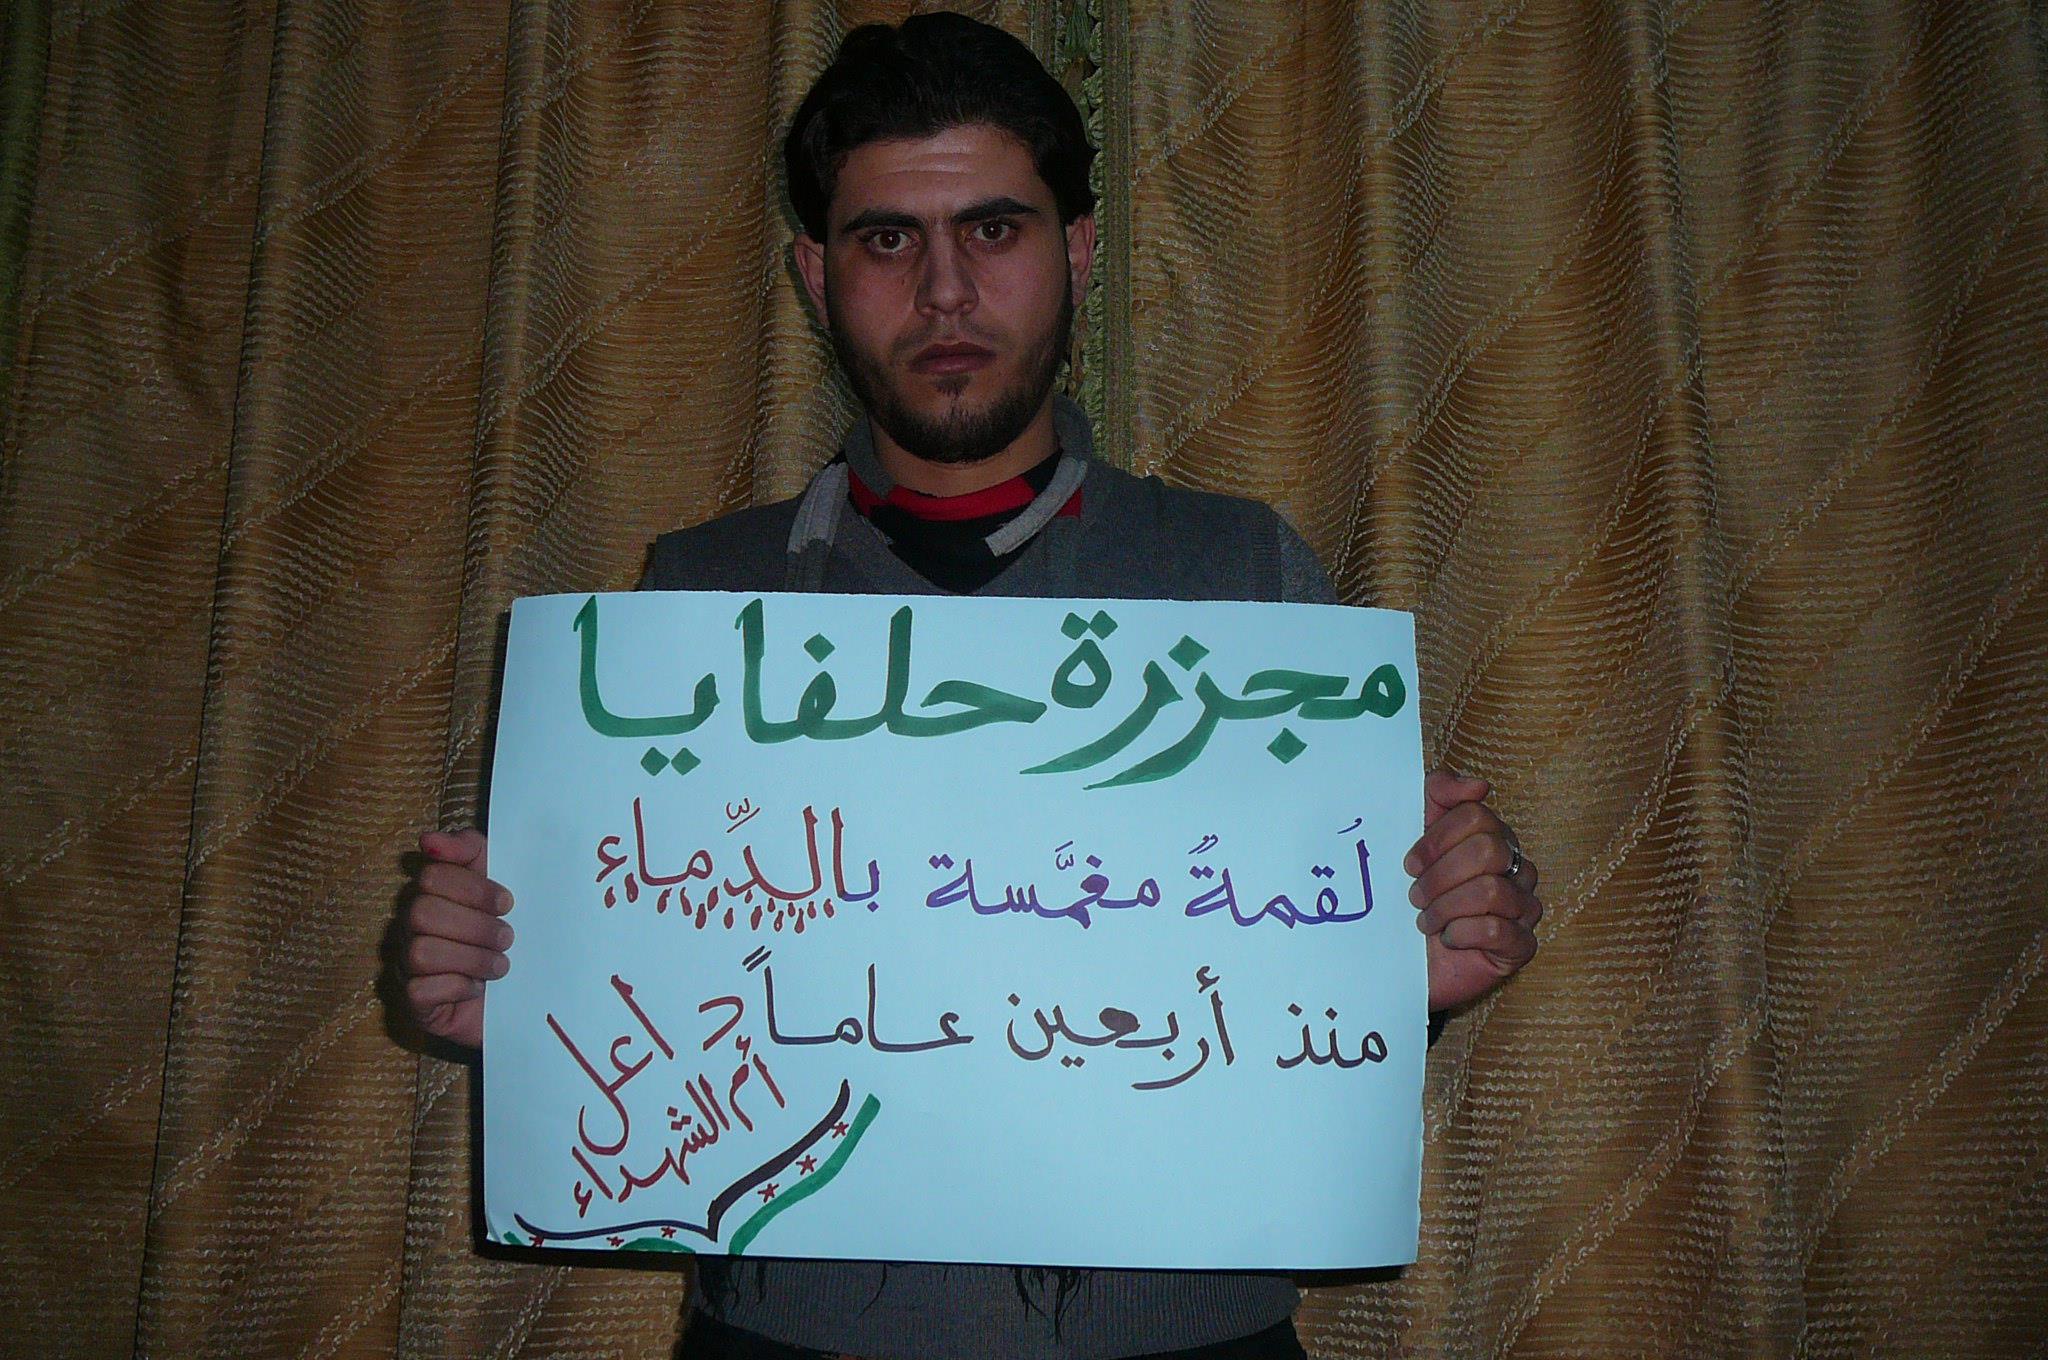 مجزرة حلفايا
لُقمةٌ مغمَّسة بالدِّماءِ
منذ أربعين عاماً
داعل
أم الشهداء